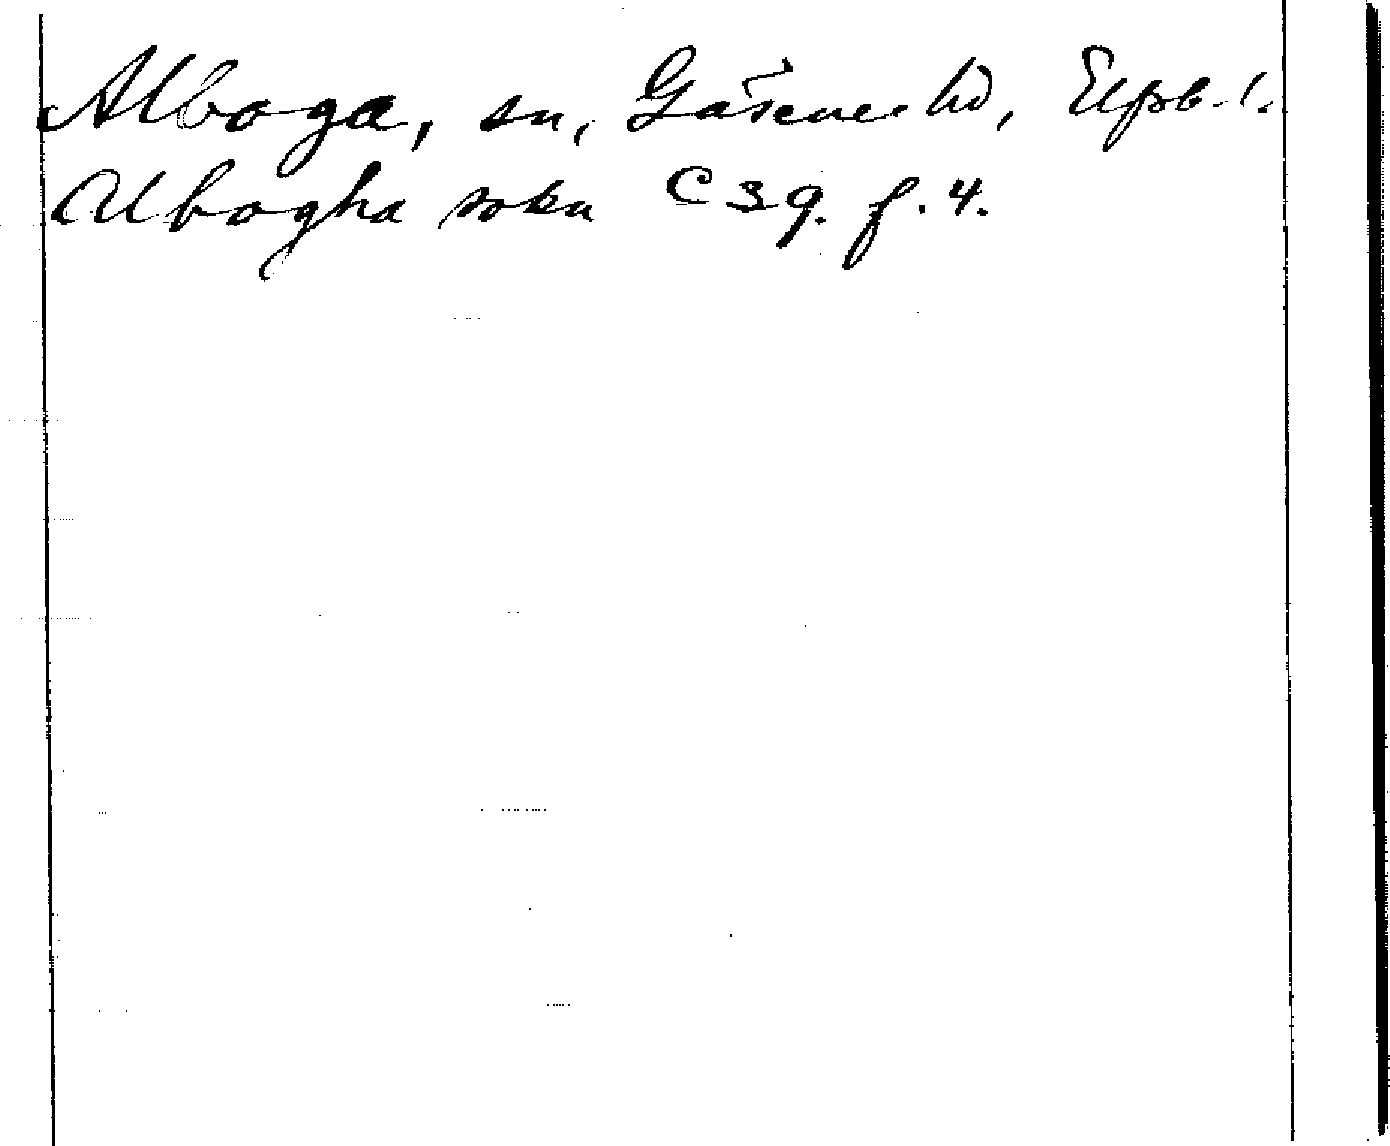 Alboga, sn, Gäsene hd, Elfsb. l.
Albogha sokn C 39. f. 4.